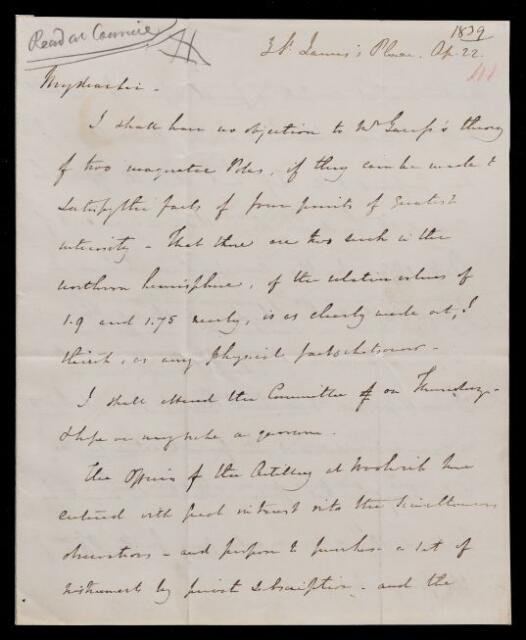 Read at Council
1839
3 St. James's Place. Ap. 22.
My dear Sir -
I shall have no objection to Mr Gauss's theory
of two magnetic Poles, if they can be made to
satisfy the facts of four points of greatest
intensity - That there are two such in the
northern hemisphere, of the relative values of
1.9 and 1.75 nearly, is as clearly made out, I
think, as any physical fact whatsoever -
I shall attend the Committee on Thursday -
& hope we may make a quorum.
The Officers of the Artillery at Woolwich have
entered with great interest into the simultaneous
observations - and propose to purchase a set of
instruments by private subscription - and the